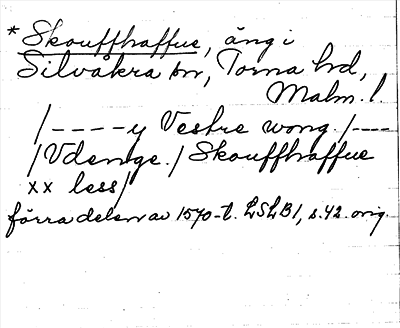 * Skouffhaffue, äng i
Silvåkra sn, Torna hd,
Malm. l.
/----y Vestre wong. /----
/Vdenge./ Skouffhaffue
xx less/
förra delen av 1570-t. LSLB1, s. 42. orig.